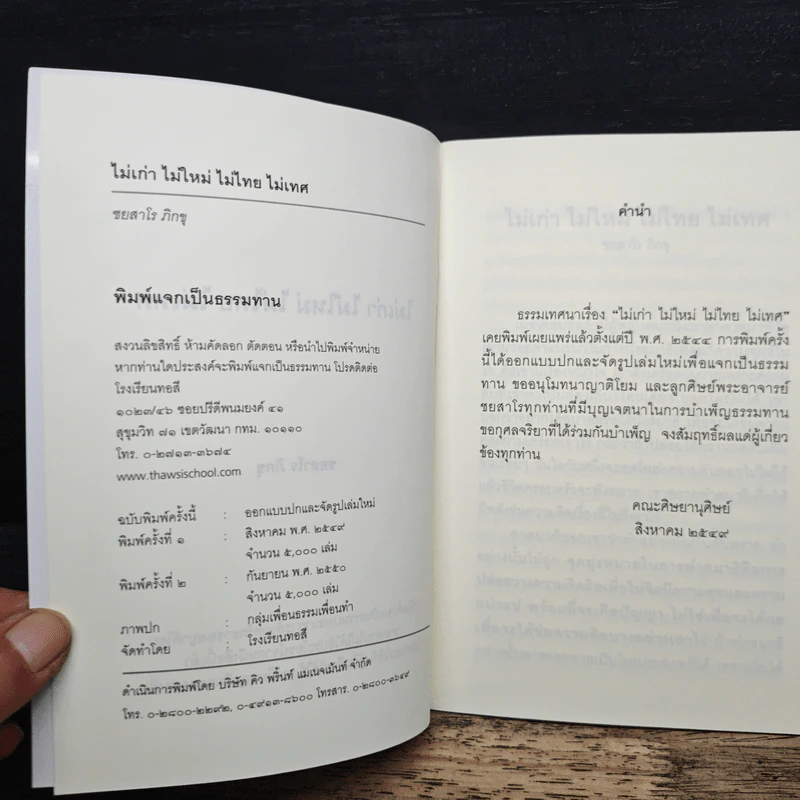 ไม่เก่า ไม่ใหม่ ไม่ไทย ไม่เทศ
ชยสาโร ภิกขุ
พิมพ์แจกเป็นธรรมทาน
สงวนลิขสิทธิ์ ห้ามคัดลอก ตัดตอน หรือนำไปพิมพ์จำหน่าย
หากท่านใดประสงค์จะพิมพ์แจกเป็นธรรมทาน โปรดติดต่อ
โรงเรียนทอสี
๑๐๒๓/๔๖ ซอยปรีดีพนมยงค์ ๔๑
สุขุมวิท ๗๑ เขตวัฒนา กทม. ๑๐๑๑๐
โทร. ๐-๒๗๑๓-๓๖๗๔
www.thawsischool.com
ฉบับพิมพ์ครั้งนี้ : ออกแบบปกและจัดรูปเล่มใหม่
พิมพ์ครั้งที่ ๑ : สิงหาคม พ.ศ. ๒๕๔๙
จำนวน ๕,๐๐๐ เล่ม
พิมพ์ครั้งที่ ๒ : กันยายน พ.ศ. ๒๕๕๐
จำนวน ๕,๐๐๐ เล่ม
ภาพปก : กลุ่มเพื่อนธรรมเพื่อนทำ
จัดทำโดย : โรงเรียนทอสี
ดำเนินการพิมพ์โดย บริษัท คิว พริ้นท์ แมเนจเม้นท์ จำกัด
โทร. ๐-๒๘๐๐-๒๒๙๒, ๐-๔๙๑๓-๘๖๐๐ โทรสาร. ๐-๒๘๐๐-๓๖๔๙
คำนำ
ธรรมเทศนาเรื่อง “ไม่เก่า ไม่ใหม่ ไม่ไทย ไม่เทศ”
เคยพิมพ์เผยแพร่แล้วตั้งแต่ปี พ.ศ. ๒๕๔๔ การพิมพ์ครั้ง
นี้ได้ออกแบบปกและจัดรูปเล่มใหม่เพื่อแจกเป็นธรรม
ทาน ขออนุโมทนาญาติโยม และลูกศิษย์พระอาจารย์
ชยสาโรทุกท่านที่มีบุญเจตนาในการบำเพ็ญธรรมทาน
ขอกุศลจริยาที่ได้ร่วมกันบำเพ็ญ จงสัมฤทธิ์ผลแด่ผู้เกี่ยว
ข้องทุกท่าน
คณะศิษยานุศิษย์
สิงหาคม ๒๕๔๙